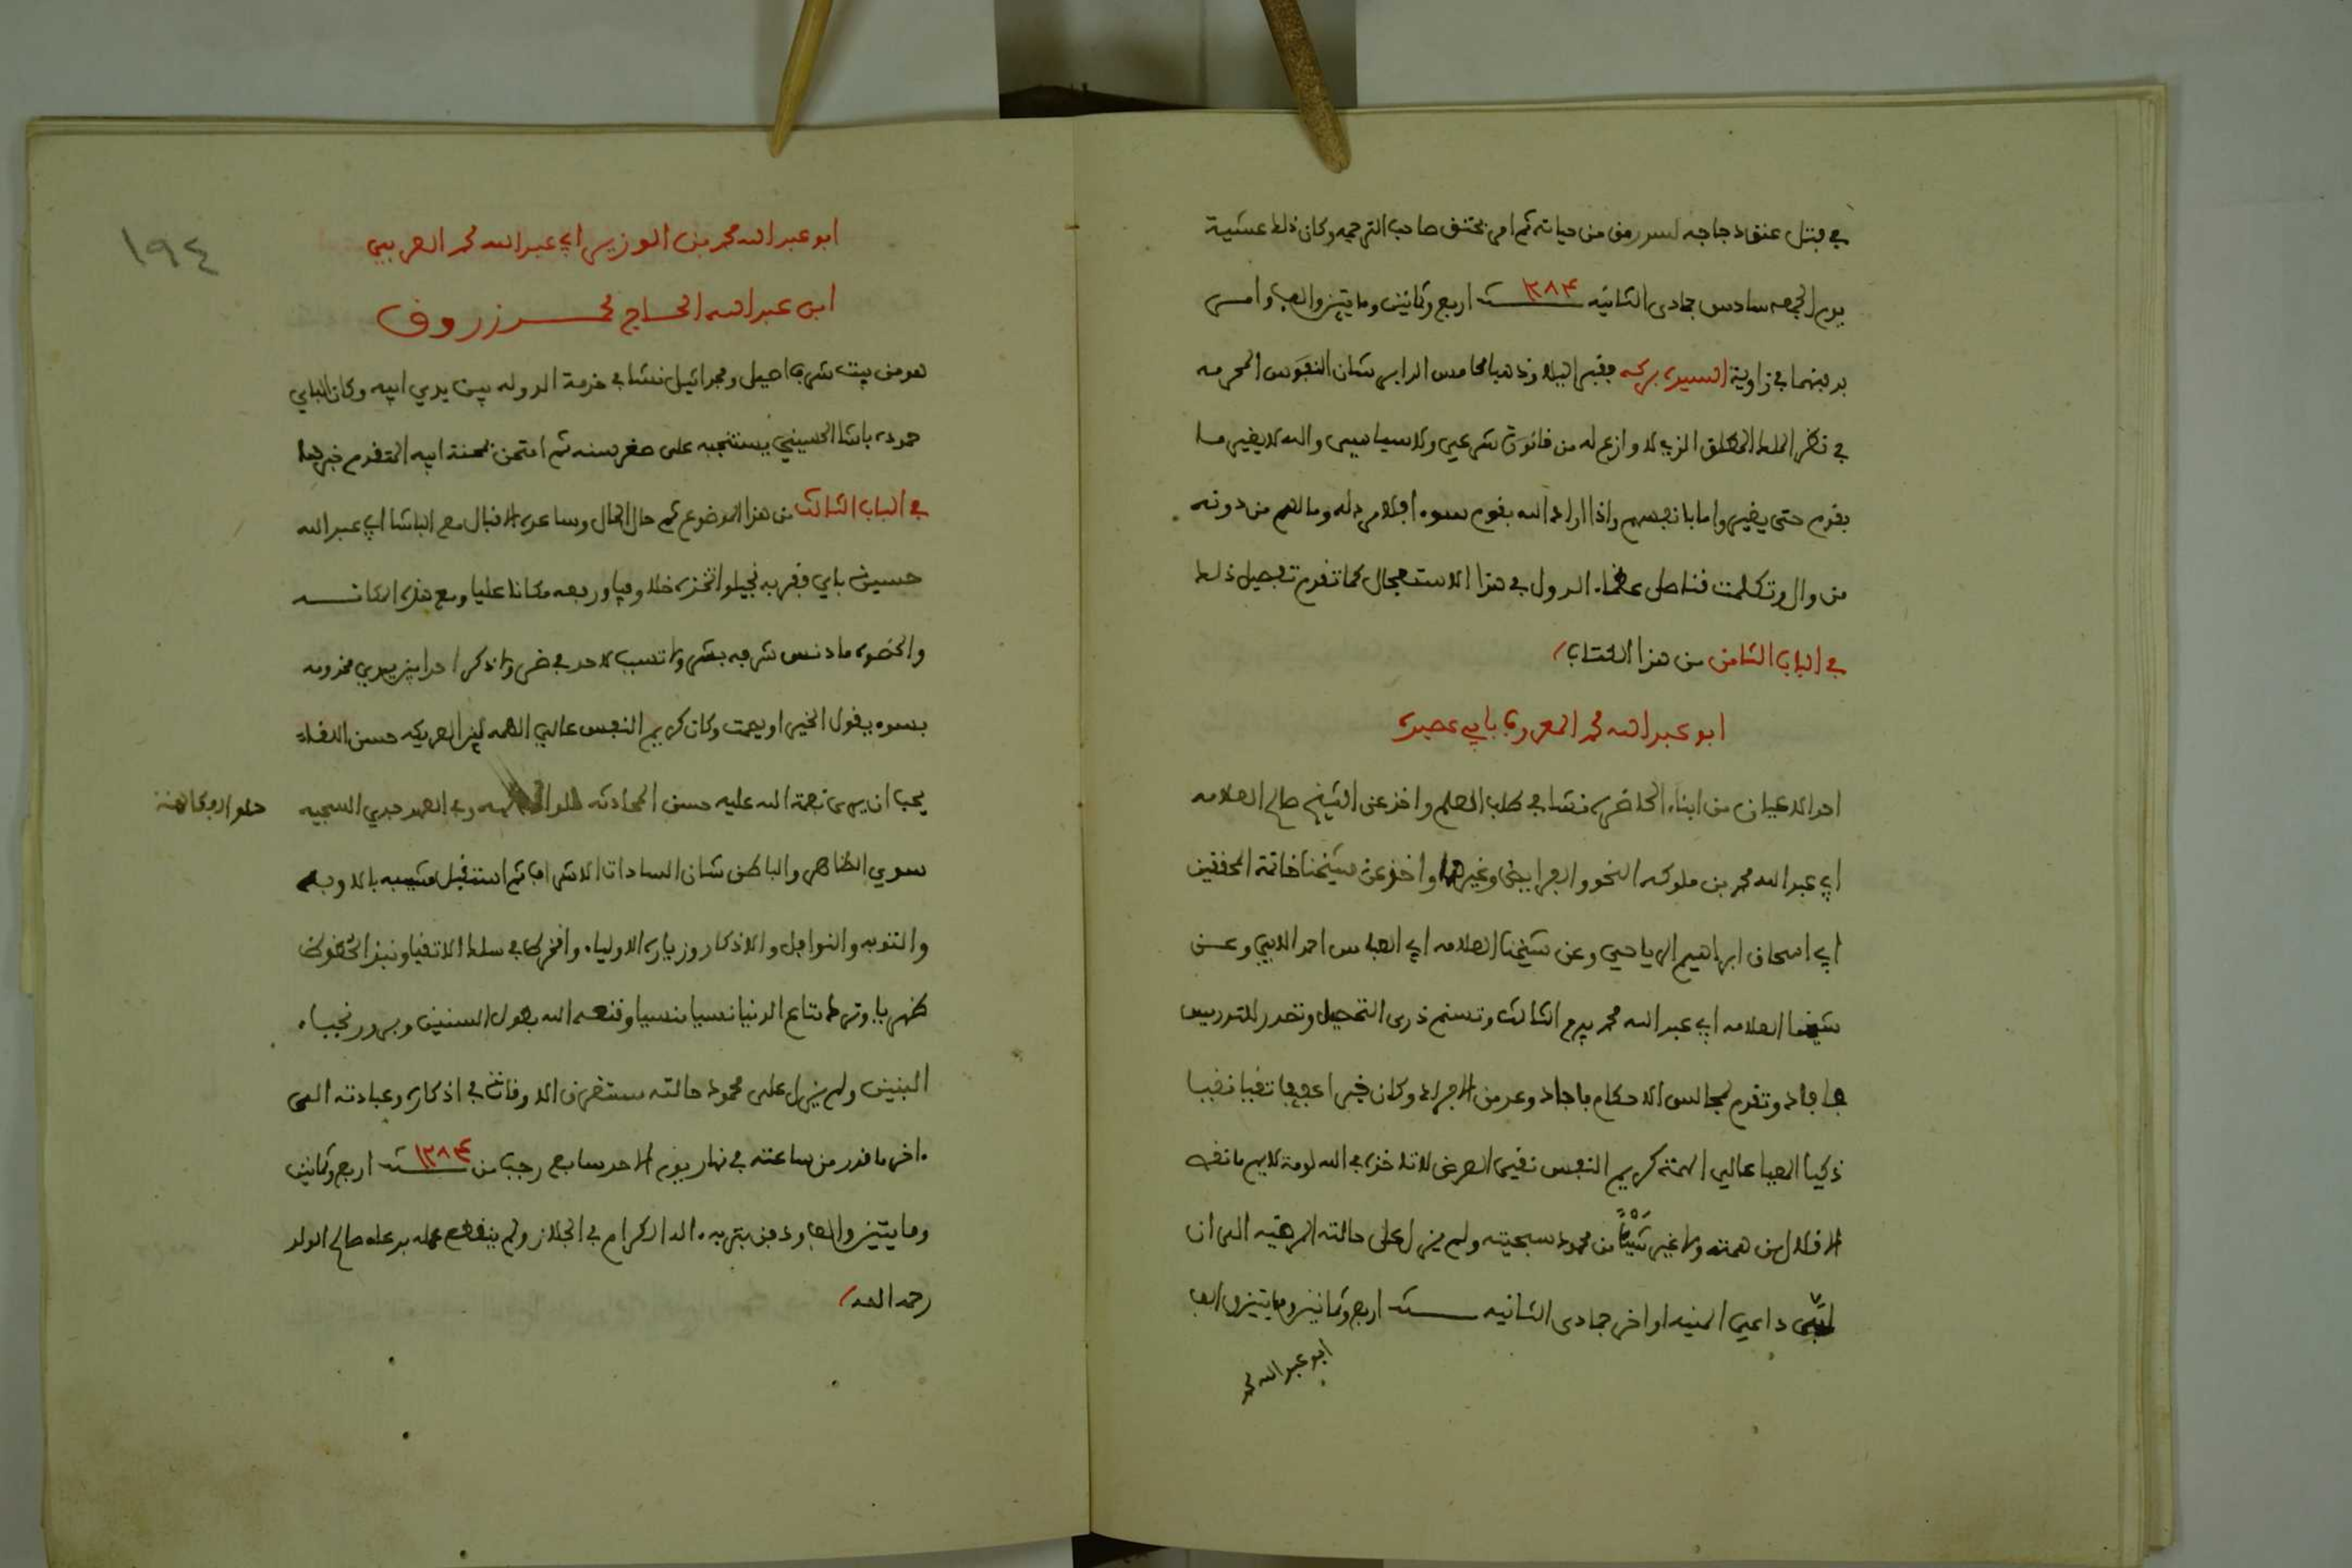 في فتل عنق دجاجه لسد رمق من حياته ثم امر بخنق صاحب الترجمه وكان ذلك عشية
يوم الجمعه سادس جمادى الثانيه سنة ١٢٨٤ اربع وثمانين ومايتين والف وامر
بدفنهما في زاوية السيدة بركه فقبر البلا وذهبا شان النفوس المحرمه
في نظر الملك المطلق الذي لا وازع له من قانون شرعي ولا سياسي والله لا يغير ما
بقوم حتى يغيروا ما بانفسهم واذا اراد الله بقوم سوءا فلا مرد له وما لهم من دونه
من وال وتكلمت قناصل عظماء الدول في هذا الاستعجال كما تقدم تفصيل ذلك
في الباب الثامن من هذا الكتاب
ابو عبد الله محمد المعروف بابي عصيدة
احد الاعيان من ابناء الحاضره نشا في طلب العلم واخذ عن الشيخ صالح العلامه
ابي عبد الله محمد بن ملوكه النحو والفرايض وغيرهما واخذ عن شيخنا خاتمة المحققين
ابي اسحاق ابراهيم الرياحي وعن شيخنا العلامه ابي العباس احمد الابي وعن
شيخنا العلامه ابي عبد الله محمد بيرم الثالث وتسنم ذرى التحصيل وتصدر للتدريس
فافاد وتقدم لمجالس الاحكام فاجاد وعد من الافراد وكان خيرا عفيفا تقيا نقيا
ذكيا المعيا عالي الهمة كريم النفس نقي العرض لا تاخذه في الله لومة لايم ما نقص
الاقلال من همته ولا غير شيئا من محمود سجيته ولم يزل على حالته المرضيه الى ان
لبى داعي المنيه اواخر جمادى الثانيه سنة اربع وثمانين ومايتين والف
ابو عبد الله محمد
١٩٤
ابو عبد الله محمد بن الوزير ابي عبد الله محمد العربي
ابن عبد الله الحاج محمد زروق
هو من بيت شرف اصيل ومجد اثيل نشا في خدمة الدوله بين يدي ابيه وكان الباي
حموده باشا الحسيني يستنجبه على صغر سنه ثم امتحن بمحنة ابيه المتقدم خبرها
في الباب الثالث من هذا الموضوع ثم حال الحال وساعده الاقبال مع الباشا ابي عبد الله
حسين باي فقربه نجيا واتخذه خلا وفيا ورفعه مكانا عليا ومع هذه المكانه
والحضوه ما دنس شرفه بشر ولا تسبب لاحد في ضر واذا ذكر احد بين يدي مخدومه
بسوء يقول الخير او يصمت وكان كريم النفس عالي الهمه لين العريكه حسن اللقاء
يحب ان يرى نعمة الله عليه حسن المحادثه حلو وفي العهد جدي السجيه
حلو الفكاهة
سوي الظاهر والباطن شان السادات الاشراف ثم استقبل مشيبه بالاوبه
والتوبه والنوافل والاذكار وزيارة الاولياء وانخرط في سلك الاتقيا ونبذ الحظوظ
ظهريا وترك متاع الدنيا نسيا منسيا ومتعه الله بطول السنين وبرور نجباء
البنين ولم يزل على محمود حالته مستغرق الاوقات في اذكاره وعبادته الى
اخر ما قدر من ساعته في نهار يوم الاحد سابع رجب من سنة ١٢٨٤ اربع وثمانين
ومايتين والف ودفن بتربه الدار كرام في الجلاز ولم ينقطع عمله بدعاء صالح الولد
رحمه الله